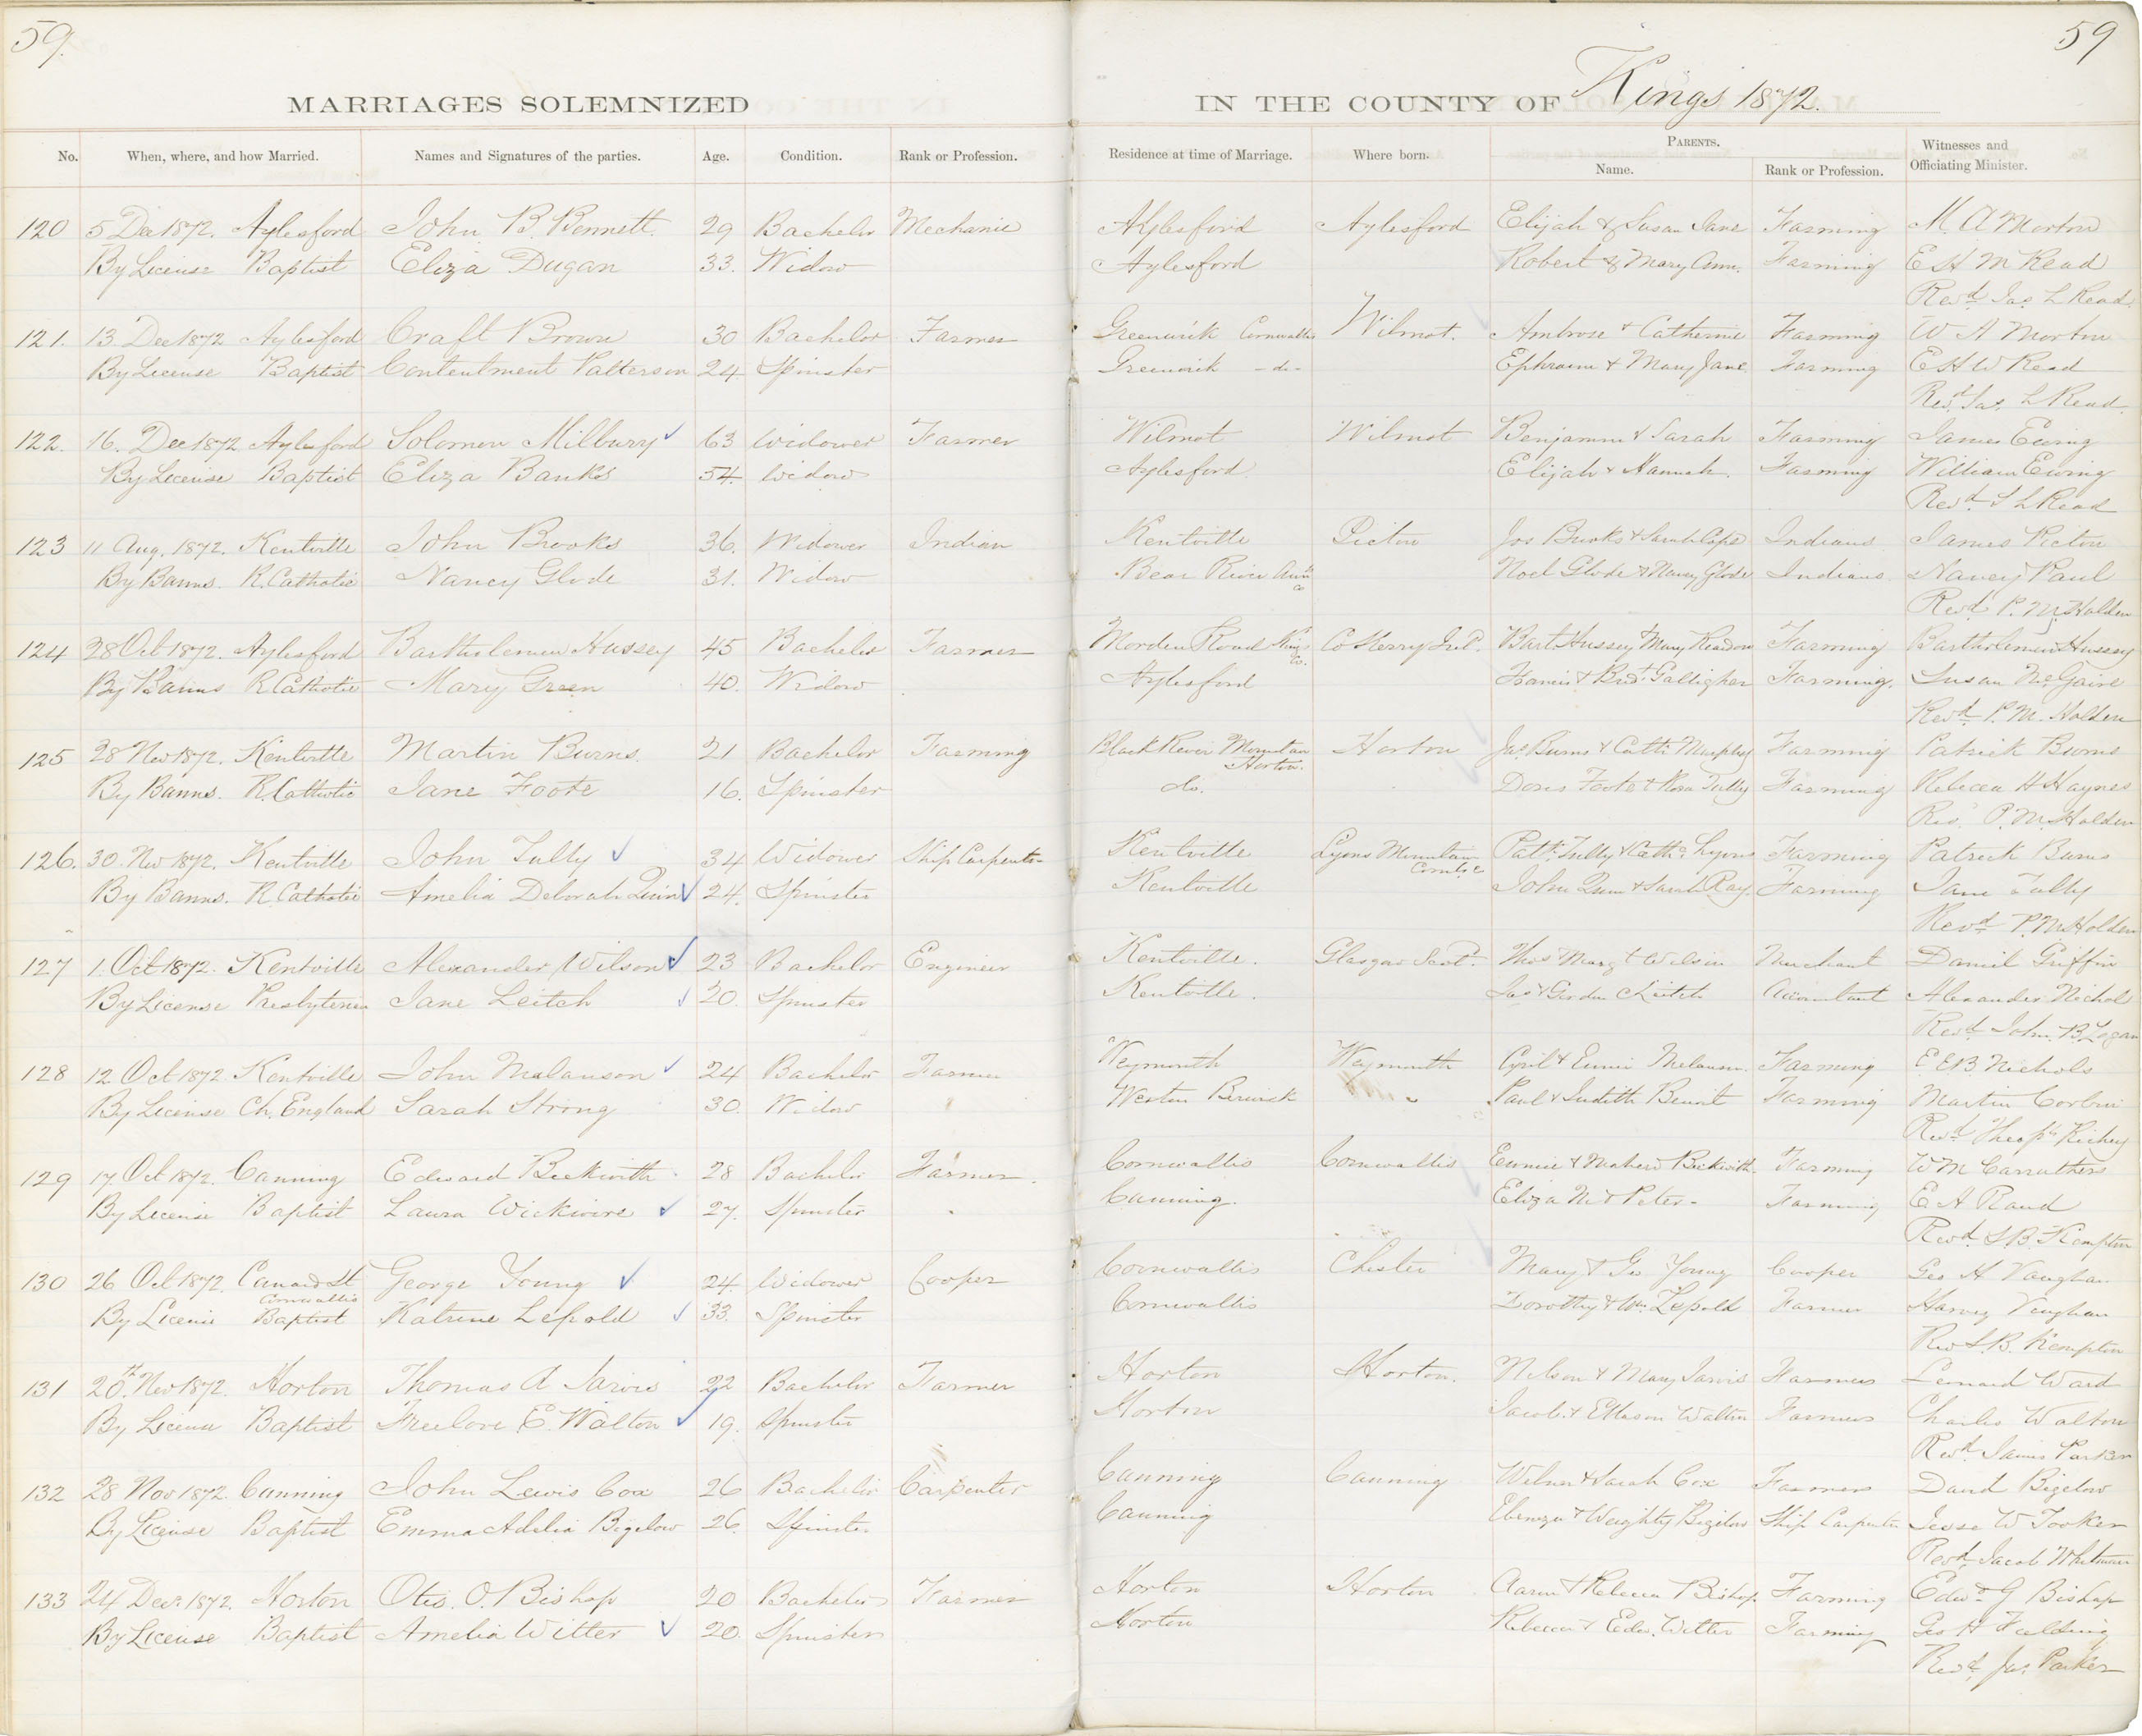 59.
59
MARRIAGES SOLEMNIZED
IN THE COUNTY OF Kings 1872.
No. When, where, and how Married. Names and Signatures of the parties. Age. Condition. Rank or Profession. Residence at time of Marriage. Where born. PARENTS. Name. Rank or Profession. Witnesses and Officiating Minister.
120 5 Dec 1872. Aylesford John B. Bennett. 29 Bachelor Mechanic Aylesford Aylesford Elijah & Susan Jane Farming M. A Morton
By License Baptist Eliza Dugan 33. Widow Aylesford Robert & Mary Ann. Farming E H M Read
Revd Jas L Read.
121. 13 Dec 1872 Aylesford Craft Brown 30 Bachelor Farmer Greenwich Cornwallis Wilmot. Ambrose & Catherine Farming W A Morton
By License Baptist Contentment Patterson 24 Spinster Greenwich - do - Ephraim & Mary Jane Farming E H W Read
Revd Jas. L Read.
122. 16. Dec 1872 Aylesford Solomon Milbury 63 Widower Farmer Wilmot Wilmot Benjamin & Sarah Farming James Ewing
By License Baptist Eliza Banks 54. Widow Aylesford Elijah & Hannah. Farming William Ewing
Revd. J L Read
123 11 Aug. 1872. Kentville John Brooks 36. Widower Indian Kentville Picton Jos Brooks & Sarah Cope Indians James Picton
By Banns. R. Catholic Nancy Glode 31. Widow Bear River Ann Co Noel Glode & Nancy Glode Indians Nancy Paul
Revd P. M. Holden
124 28 Oct 1872. Aylesford Bartholemew Hussey 45 Bachelor Farmer Morden Road Kings Co. Co Kerry Ird. Bart Hussey & Mary Reardon Farming Bartholemew Hussey
By Banns R. Catholic Mary Green 40. Widow Aylesford Francis & Brid. Galligher Farming. Susan McGaire
Revd. P. M. Holden
125 28 Nov 1872. Kentville Martin Burns. 21 Bachelor Farming Black River Mountan Horton. Horton Jas. Burns & Cath: Murphy Farming Patrick Burns
By Banns. R. Catholic Jane Foote 16. Spinster do. Foote & Rosa Tully Farming Rebecca H Haynes
Rev. P. M. Holden
126. 30 Nov 1872. Kentville John Tully 34 Widower Ship Carpenter Kentville Lyons Mountain Patk. Tully & Cath. Lyons Farming Patrick Burns
By Banns. R. Catholic Amelia Deborah Quinn 24. Spinster Kentville John Quin & Sarah Ray. Farming Jane Tully
Revd. P. M. Holden
127 1. Oct 1872. Kentville Alexander Wilson 23 Bachelor Engineer Kentville. Glasgow Scot. Thos & Margt Wilson Merchant Daniel Griffin
By License Presbyterian Jane Leitch 20. Spinster Kentville. Leitch Accountant Alexander Nichols
Revd John. B Logan
128 12 Oct 1872. Kentville John Malanson 24 Bachelor Farmer Weymouth Weymouth Cyril & Eunice Melanson. Farming E E B. Nichols
By License Ch. England Sarah Strong 30. Widow Weston Berwick " Paul & Judith Benoit Farming Martin Corbin
Revd Theops Richey
129 17 Oct 1872. Canning Edward Beckwith 28 Bachelor Farmer. Cornwallis Cornwallis Eunice & Beckwith. Farming W M Carruthers
By License Baptist Laura Wickwire 27. Spinster Canning. Eliza M & Peter - Farming E A Rand
Revd. S. B. Kempton
130 26 Oct 1872. Canard St Cornwallis George Young 24. Widower Cooper Cornwallis Chester Mary & Geo Young Cooper Geo H Vaughan
By License Baptist Katrine Lepold 33. Spinster Cornwallis Dorothy & Wm. Lepold Farmer Harvey Vaughan
Rev S. B. Kempton
131 20th Nov 1872. Horton Thomas A Jarvis 22 Bachelor Farmer Horton Horton. Nelson & Mary Jarvis Farmers Leonard Ward
By License Baptist Freelove E. Walton 19. Spinster Horton Jacob & Walton Farmers Charles Walton
Revd. James Parker
132 28 Nov 1872. Canning John Lewis Cox 26 Bachelor Carpenter Canning Canning & Sarah Cox Farmers David Bigelow
By License Baptist Emma Adelia Bigelow 26. Spinster Canning Ebenezer & Weighty Bigelow Ship Carpenter Jesse W Tooker
Revd. Jacob Whitman
133 24 Decr 1872. Horton Otis. O. Bishop 20 Bachelor Farmer Horton Horton Aaron & Rebecca Bishop. Farming Edwd G Bishop
By License Baptist Amelia Witter 20. Spinster Horton Rebecca & Edw. Witter Farming Geo H Faulding
Revd. Jas. Parker